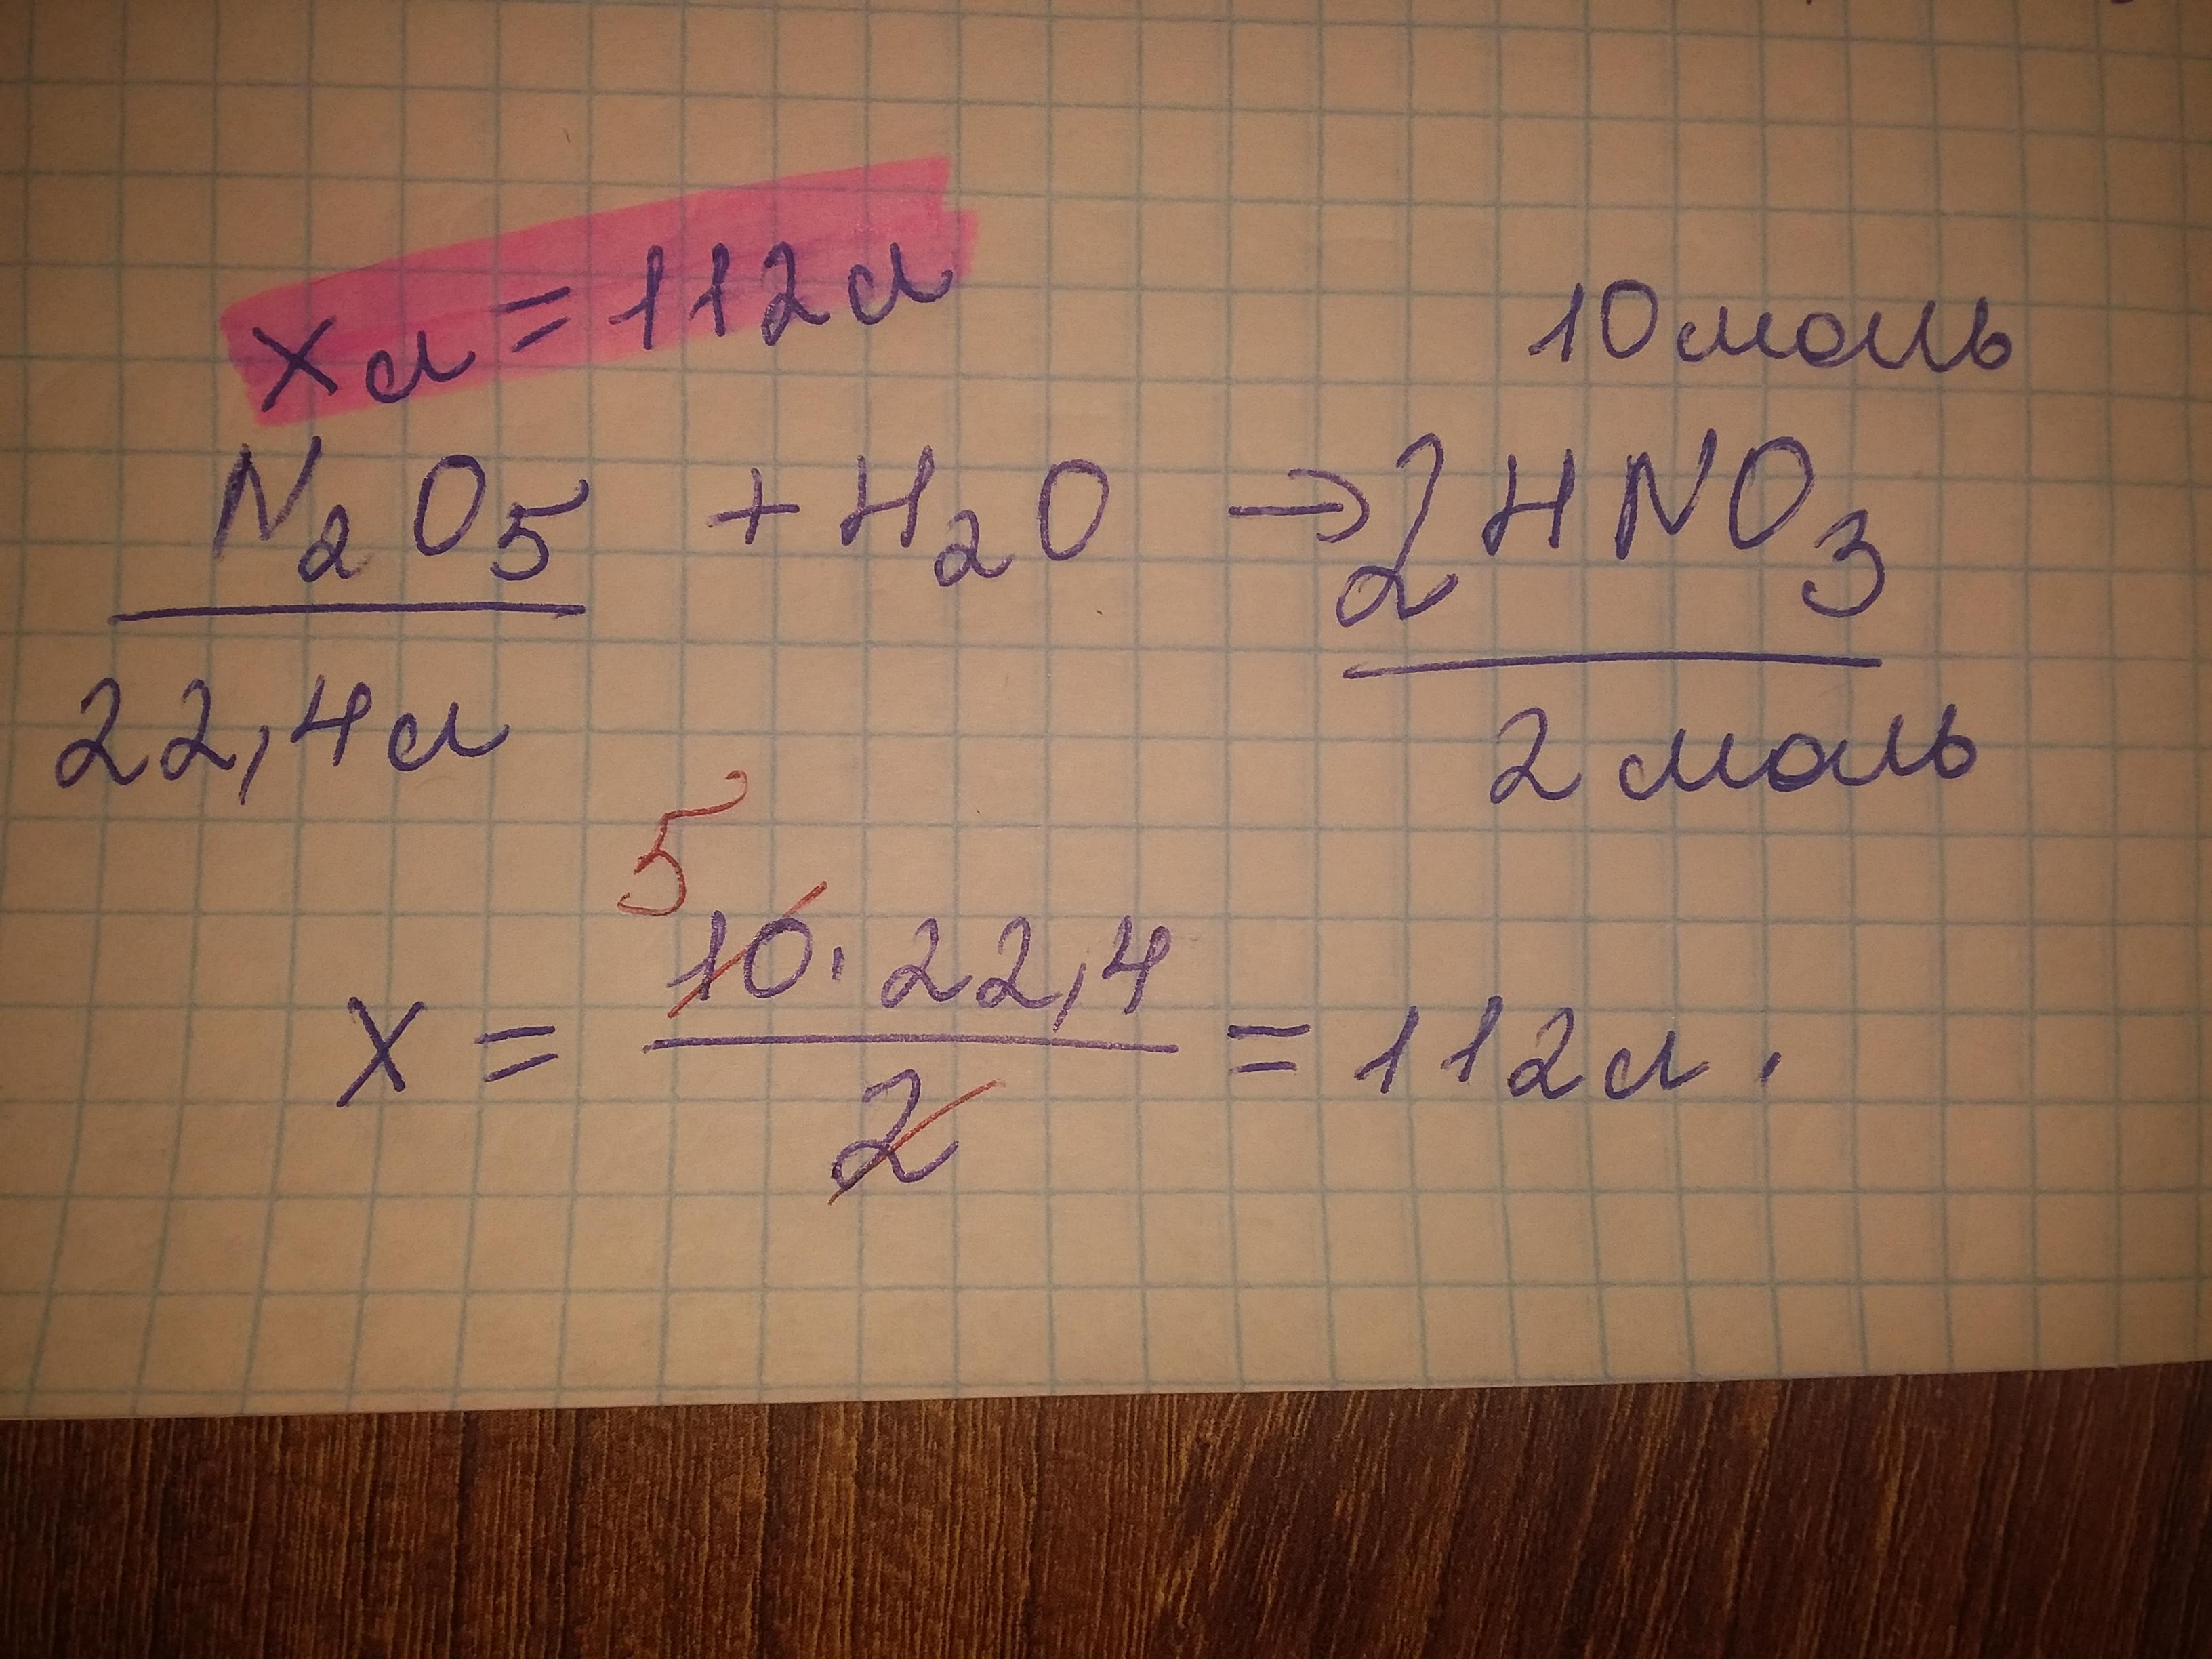 x л = 112 л
10 моль
N₂O₅ + H₂O → 2HNO₃
22,4 л
2 моль
5
x = 10 · 22,4 / 2 = 112 л.